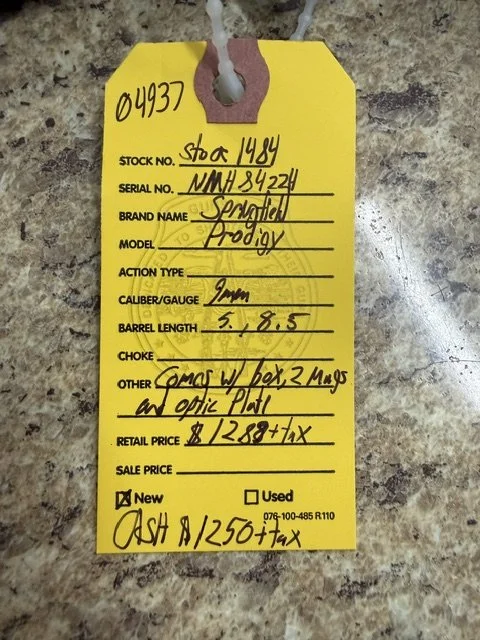 04937
STOCK NO. Stock 1484
SERIAL NO. NMH 84224
BRAND NAME Springfield
MODEL Prodigy
ACTION TYPE
CALIBER/GAUGE 9mm
BARREL LENGTH 5., 8.5
CHOKE
OTHER Comes w/ box, 2 Mags
and optic Plate
RETAIL PRICE $1288+tax
SALE PRICE
New Used
076-100-485 R110
CASH $1250+tax